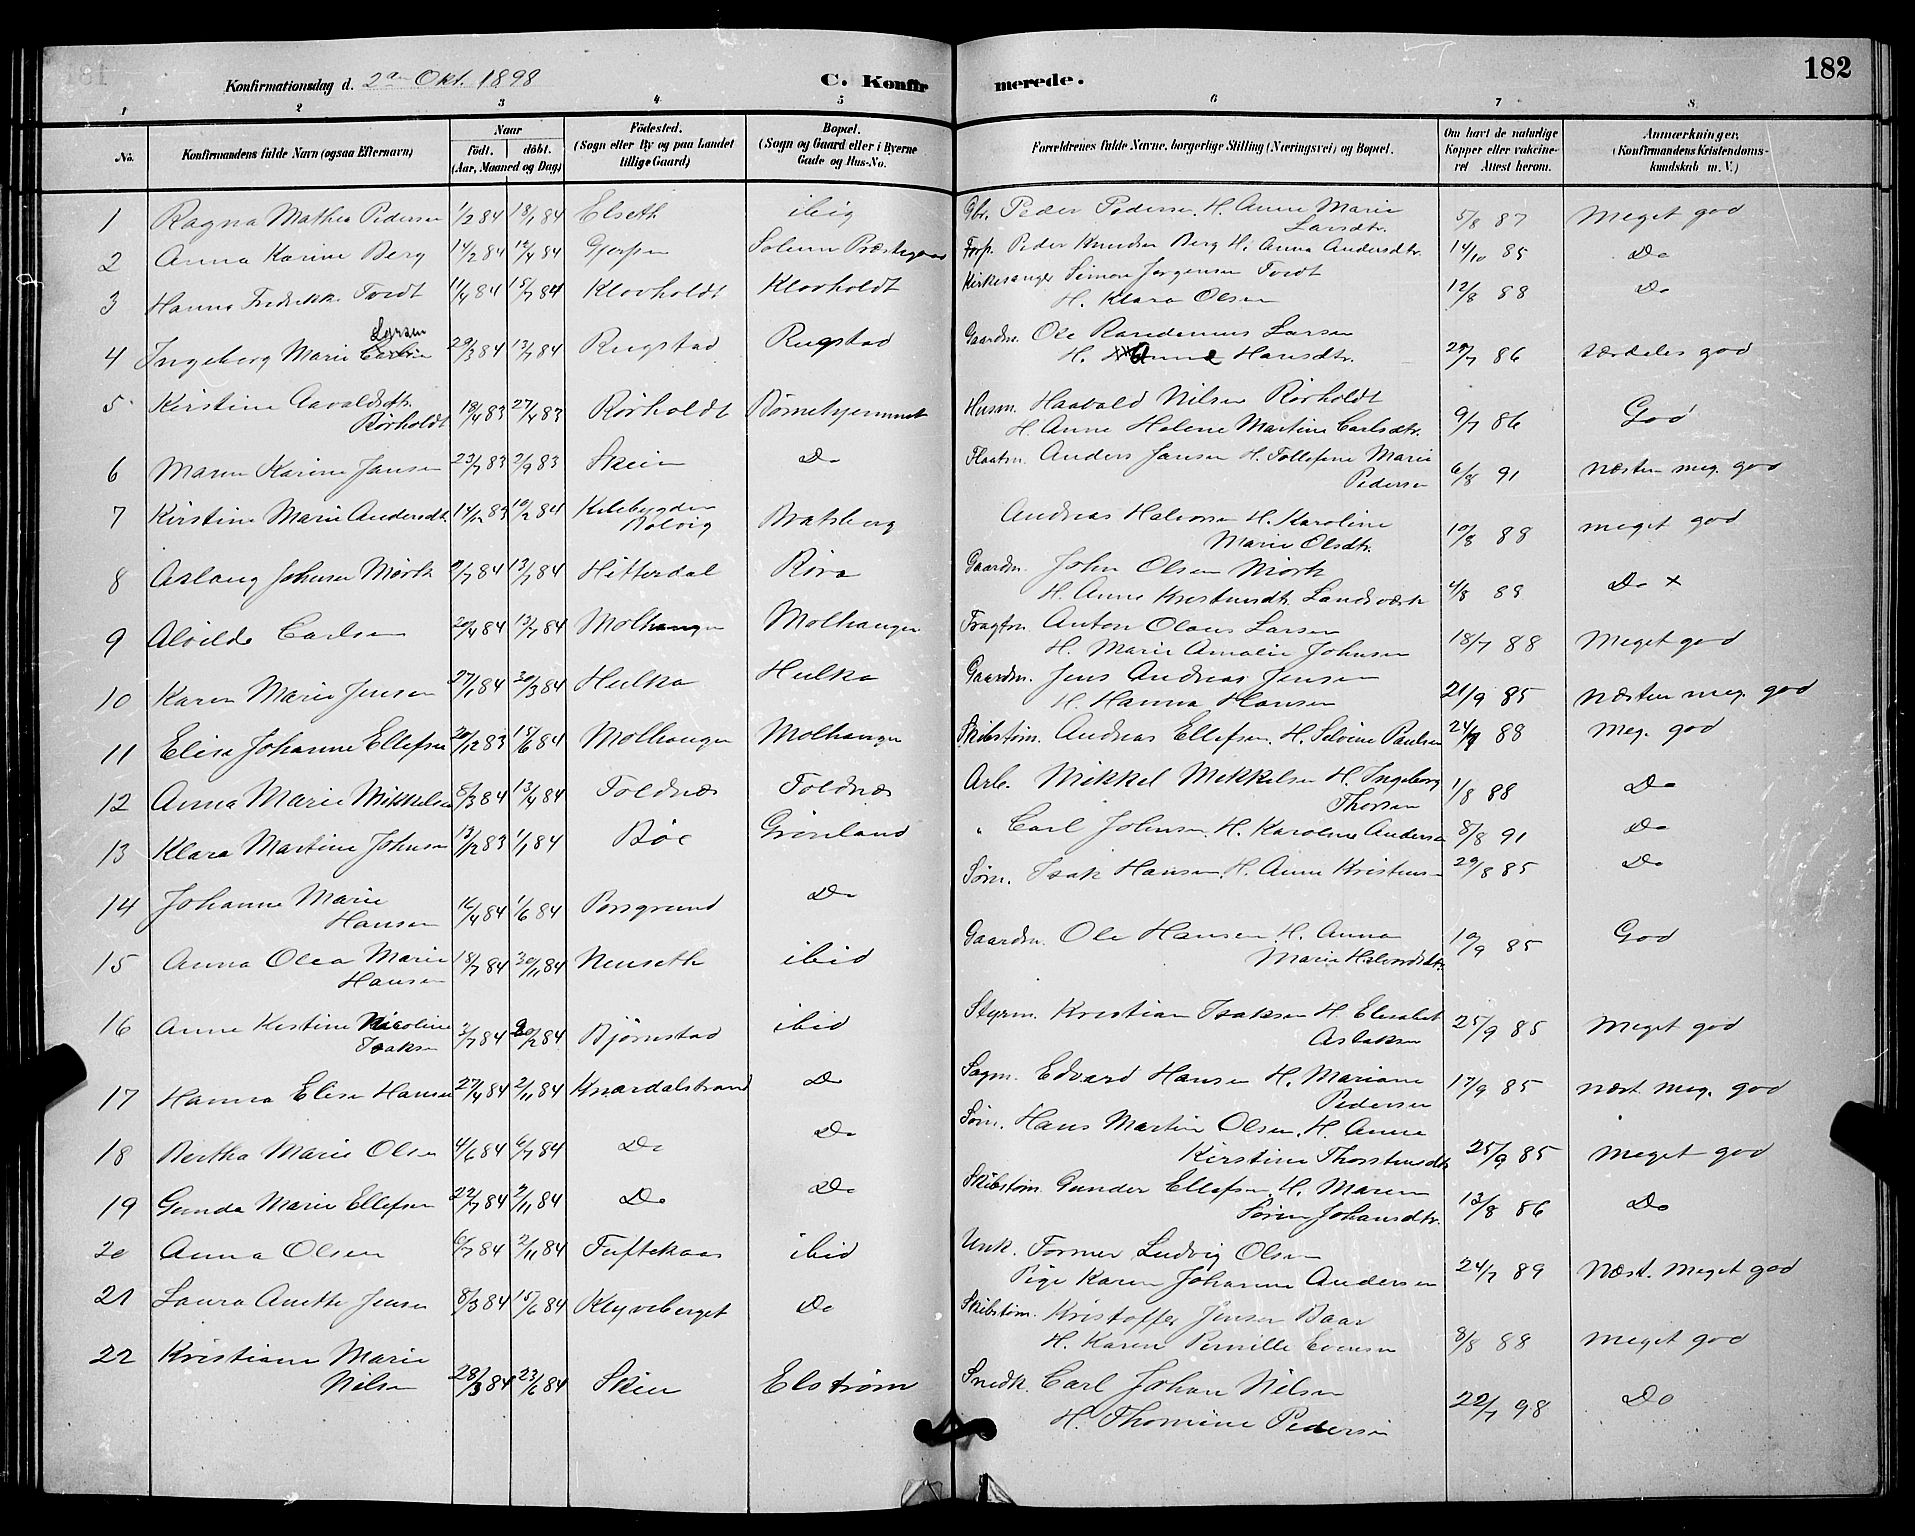 182
Konfirmationsdag d. 2den Okt. 1898 C. Konfirmerede.
1 2 3 4 5 6 7 8
No. Konfirmandens fulde Navn (ogsaa Efternavn) Naar födt. döbt. (Aar, Maaned og Dag) Födested. (Sogn eller By og paa Landet tillige Gaard) Bopæl. (Sogn og Gaard eller i Byerne Gade og Hus-No. Forældrenes fulde Navne, borgerlige Stilling (Næringsvei) og Bopæl. Om havt de naturlige Kopper eller vakcineret Attest herom. Anmærkninger, (Konfirmandens Kristendomskundskab m. V.)
1 Ragna Mathea Pedersen 1/2 84 18/1 84 Elseth ibid Gbr. Peder Pedersen. H. Anne Marie Larsdtr. 5/8 87 Meget god
2 Anna Karine Berg 14/2 84 12/4 84 Gjerpen Solum Præstegaard Forp. Peder Knudsen Berg H. Anna Andersdtr. 14/10 85 Do
3 Hanna Fredrikke Tvedt 11/4 84 15/7 84 Klovholdt Klovholdt Kirkesanger Simon Jørgensen Tvedt H. Klara Olsen 12/8 88 Do
4 Ingeborg Marie Larsen 29/3 84 13/7 84 Rugstad Rugstad Gaardm. Ole Larsen H. Anne Hansdtr. 28/7 86 særdeles god
5 Kirstine Aavaldsdtr. Rörholdt 18/4 83 27/4 83 Rörholdt Børnehjemmet Husm. Haavald Nilsen Rörholdt H. Anne Helene Martine Carlsdtr. 9/7 86 God
6 Maren Karine Jansen 23/7 83 2/9 83 Skien Do Flaatm. Anders Jansen H. Tollefine Marie Pedersen 6/8 91 næsten meg. god
7 Kirstine Marie Andersdtr. 14/12 83 10/2 84 Kilebygden Solvig Bratsberg Andreas Halvorsen H. Karoline Marie Olsdtr. 10/8 88 meget god
8 Aslaug Johnsen Mörk 9/7 84 13/7 84 Hitterdal Röra Gaardm. John Olsen Mörk H. Anne Kristensdtr. Landsværk 4/8 89 Do x
9 Alvilde Carlsen 20/4 84 13/7 84 Molhaugen Molhaugen Fragtm. Anton Olaus Larsen H. Marie Amalie Johnsen 18/7 88 Meget god
10 Karen Marie Jensen 27/1 84 30/3 84 Hulka Hulka Gaardm. Jens Andreas Jensen H. Hanna Hansen 21/9 85 næsten meg. god
11 Elise Johanne Ellefsen 20/12 83 15/6 84 Molhaugen Molhaugen Skibstøm. Andreas Ellefsen. H. Silvine Paulsen 24/9 88 meg. god
12 Anna Marie Mikkelsen 8/3 84 13/4 84 Toldnæs Toldnæs Arb. Mikkel Mikkelsen H. Ingeborg Thorsen 1/8 88 Do
13 Klara Martine Johnsen 13/12 83 1/1 84 Böe Grönland " Carl Johnsen. H. Karoline Andersen 8/8 91 Do
14 Johanne Marie Hansen 16/4 84 1/6 84 Porsgrund Do Søm. Isak Hansen. H. Anne Kristens- 29/8 85 Do
15 Anna Olea Marie Hansen 18/7 84 30/11 84 Nenseth ibid Gaardm. Ole Hansen. H. Anna Marie Halvordsdtr. 10/9 85 God
16 Anne Kestine Nicoline Isaksen 2/7 84 20/2 84 Bjørnstad ibid Styrm. Kristian Isaksen H. Elisabet Aslaksen 25/9 85 Meget god
17 Hanna Elise Hansen 27/4 84 2/11 84 Knardalstrand Do Sagm. Edvard Hansen H. Mariane Pedersen 17/9 85 næst. meg. god
18 Bertha Marie Olsen 4/6 84 6/7 84 Do Do Søm. Hans Martin Olsen. H. Anne Kirstine Thorstensdtr 25/9 85 Meget god
19 Gunda Marie Ellefsen 22/7 84 2/11 84 Do Do Skibstøm. Gunder Ellefsen. H. Maren Sørine Johansdtr. 13/8 86 Do
20 Anna Olsen 6/7 84 2/11 84 Tuftekaas ibid Unk. Former Ludvig Olsen Pige Karen Johanne Andersen 24/7 89 Næst. meget god
21 Laura Anette Jensen 8/3 84 15/6 84 Klyveberget Do Skibstøm. Kristoffer Jensen Baar H. Karen Pernille Evensen 8/8 88 meget god
22 Kristiane Marie Nilsen 28/3 84 23/6 84 Skien Elstrøm Snedk. Carl Johan Nilsen H. Thomine Pedersen 22/7 98 Do